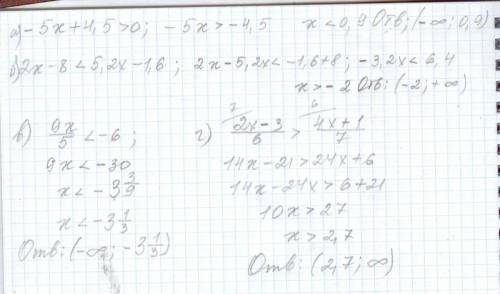 а) -5x+4,5>0; -5x>-4,5 x<0,9 Отв; (-∞; 0,9)
б) 2x-8<5,2x-1,6; 2x-5,2x<-1,6+8; -3,2x<6,4
x>-2 Отв: (-2; +∞)
в) 9x/5 < -6;
9x<-30
x<-3 3/9
x<-3 1/3
Отв: (-∞; -3 1/3)
г) 7 6
2x-3/6 > 4x+1/7
14x-21>24x+6
14x-24x>6+21
10x>27
x>2,7
Отв: (2,7; ∞)